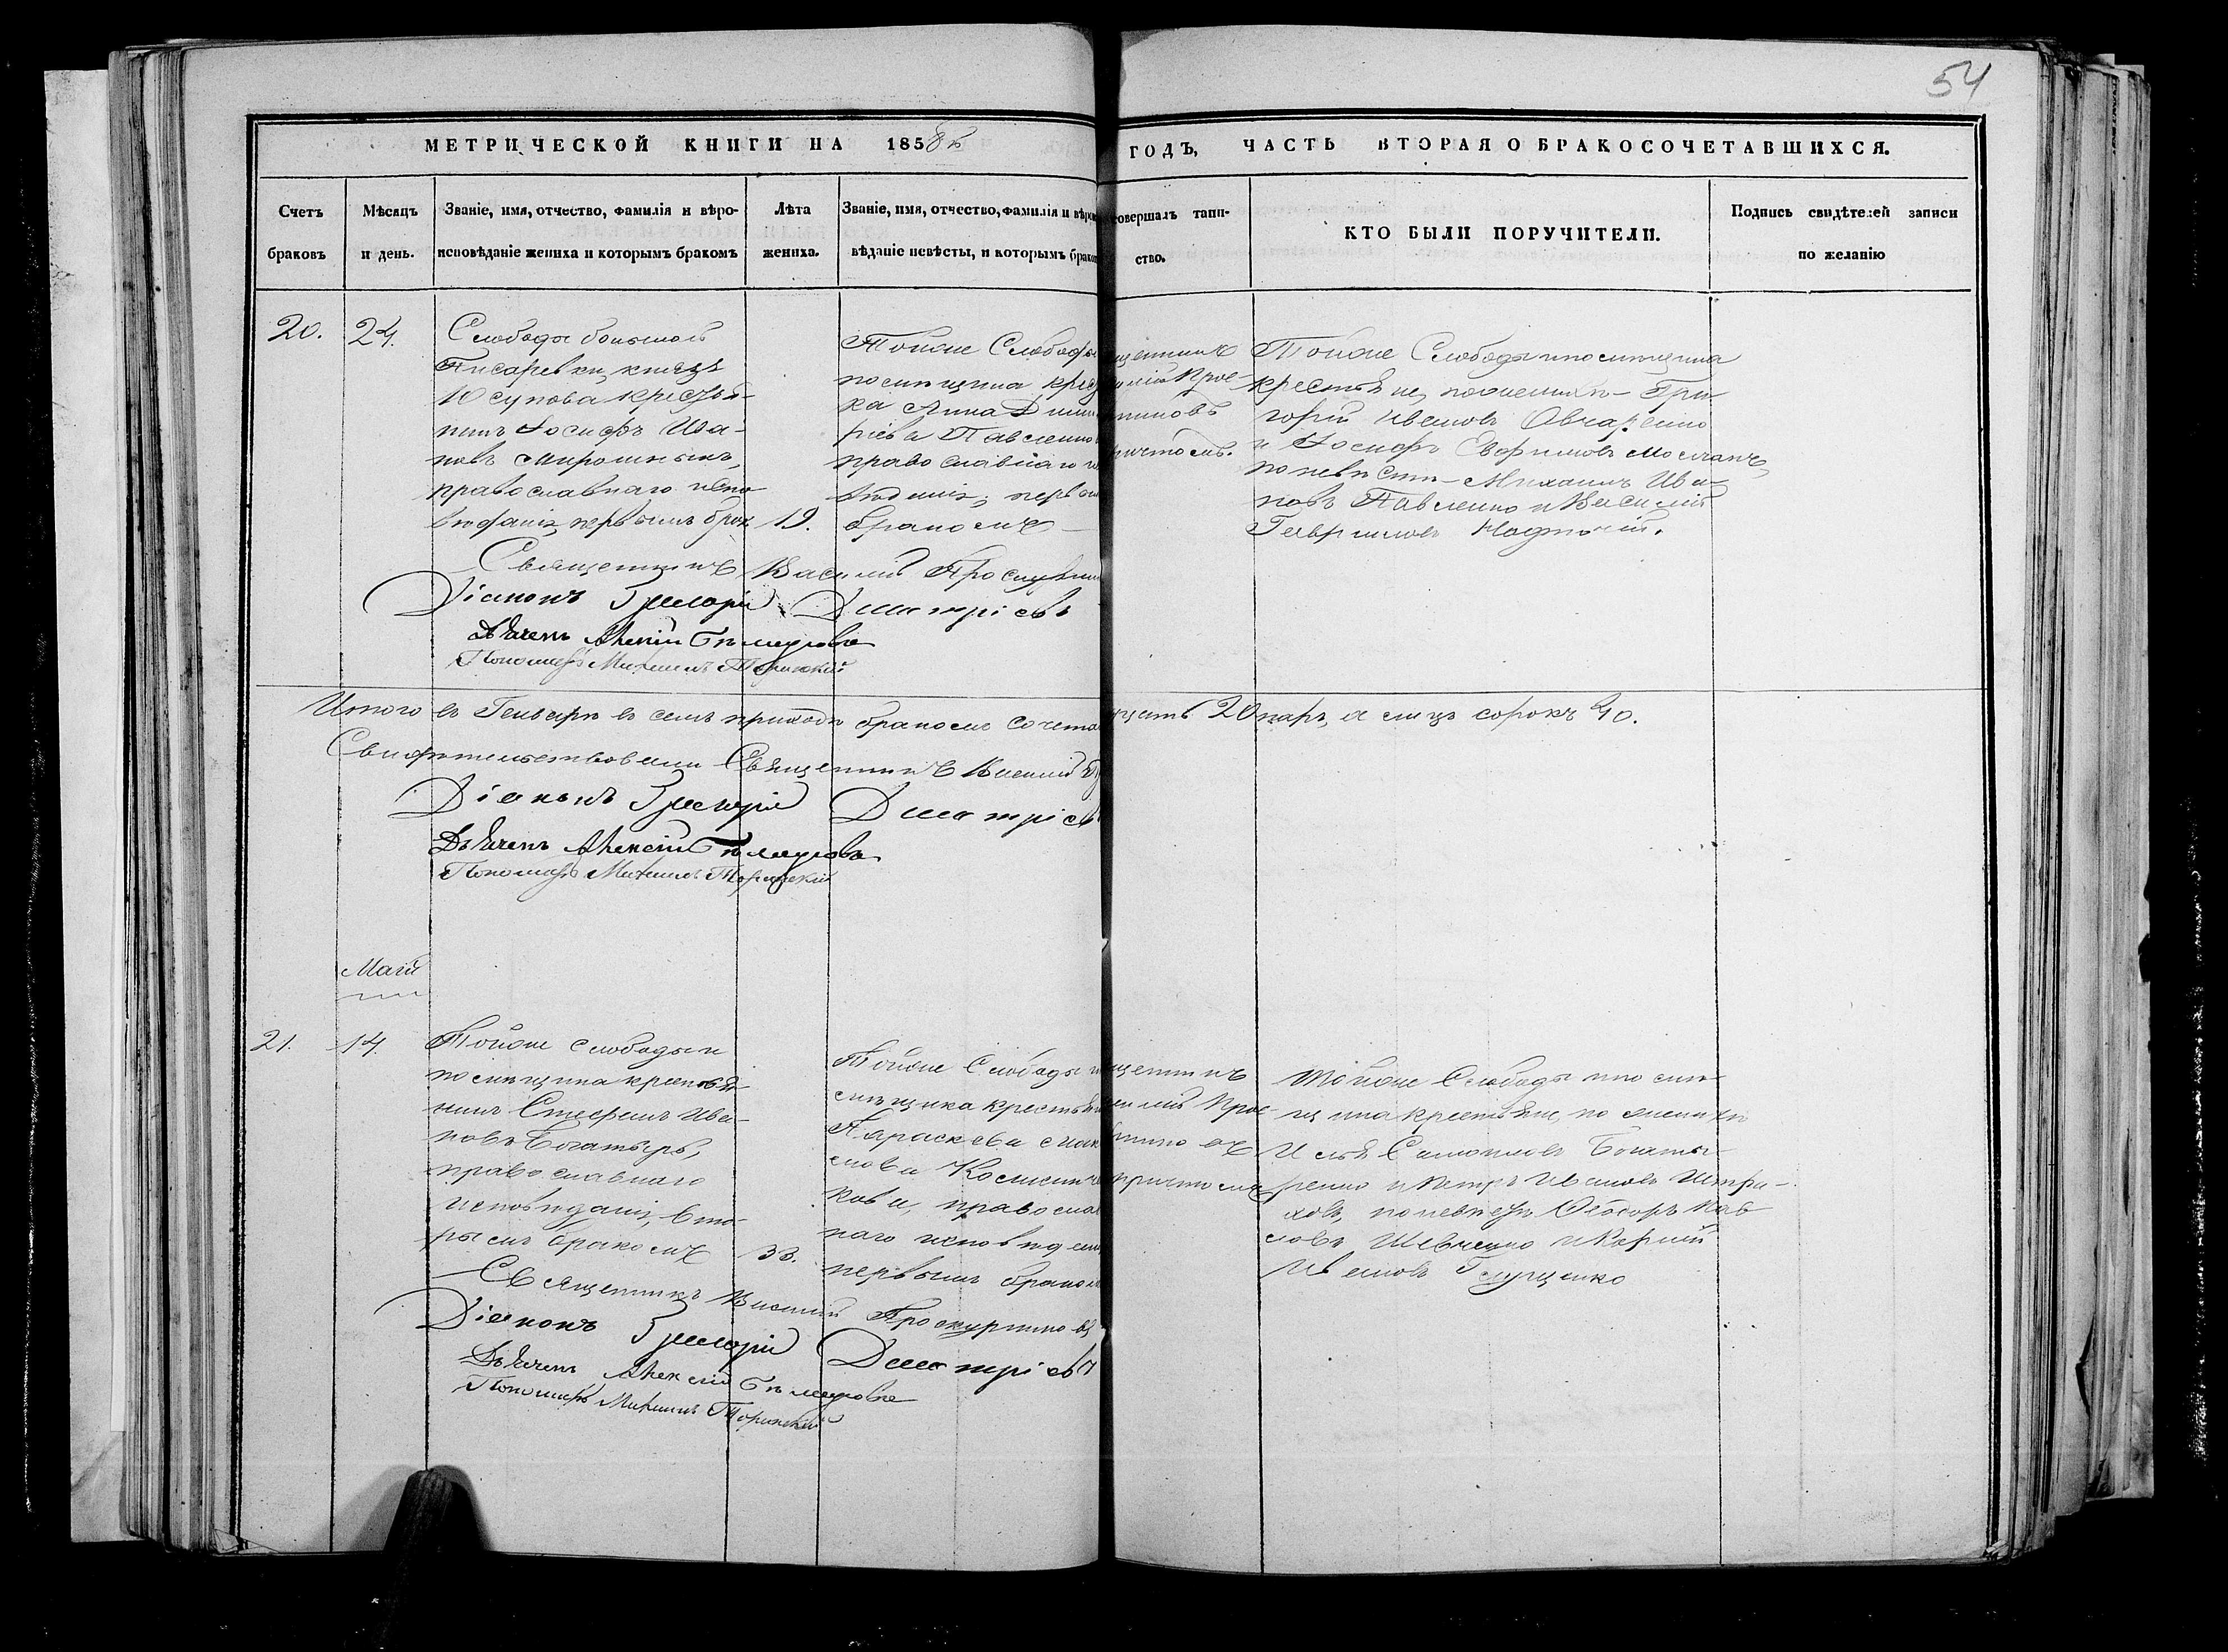 54
МЕТРИЧЕСКОЙ КНИГИ НА 1858й
ГОДЪ, ЧАСТЬ ВТОРАЯ О БРАКОСОЧЕТАВШИХСЯ.
Счетъ браковъ
Мѣсяцъ и день.
Званіе, имя, отчество, фамилія и вѣроисповѣданіе жениха и которымъ бракомъ
Лѣта жениха.
Званіе, имя, отчество, фамилія и вѣро
вѣданіе невѣсты, и которымъ брако
совершалъ таин-
ство.
КТО БЫЛИ ПОРУЧИТЕЛИ.
Подпись свидѣтелей записи
по желанію
20.
24.
Слободы большой
Писаревки, князя
Юсупова крестья-
нинъ Іосифъ Ива-
новъ Мирошныкъ,
православнаго испо
вѣданія, первымъ брак
19.
Тойже Слободы
помѣщика крес
ка Анна Дими
ріева Павленко
православнаго и
вѣданія, первы
бракомъ
щенникъ
Прос-
риновъ
причтомъ.
Тойже Слободы и помѣщика
крестьяне, по женихѣ Гри
горій Ивановъ Овчаренко
и Іосифъ Ефимовъ Молчанъ,
по невѣстѣ Михаилъ Ива-
новъ Павленко и Василій
Гавриловъ
Священникъ Василій Проскурни
Діаконъ Григорій Дмитріевъ
Дьячекъ Алексій
Пономарь Михаилъ Торанскій
Итого въ Генварѣ въ семъ приходѣ бракомъ сочета
цать 20 паръ, а лицъ сорокъ 40.
Свидѣтельствовали Священникъ Василій
Діаконъ Григорій Дмитріевъ
Дьячекъ Алексій
Пономарь Михаилъ Торанскій
Май
21.
14.
Тойже слободы и
помѣщика крестья
нинъ Стефанъ Ива-
новъ Богатырь,
православнаго
исповѣданія, вто-
рымъ бракомъ
33.
Тойже Слободы и
мѣщика крестьян
Параскева
слова
кова, православ
наго исповѣдані
первымъ браком
щенникъ
силій Прос
риновъ
причтомъ
Тойже Слободы и помѣ-
щика крестьяне, по женихѣ
Илья Самойловъ Богаты-
ренко и Петръ Ивановъ
по невѣстѣ Ѳеодоръ Пав
ловъ Шевченко и Корній
Ивановъ Глущенко
Священникъ Василій Проскурниновъ
Діаконъ Григорій Дмитріевъ
Дьячекъ Алексій
Пономарь Михаилъ Торанскій